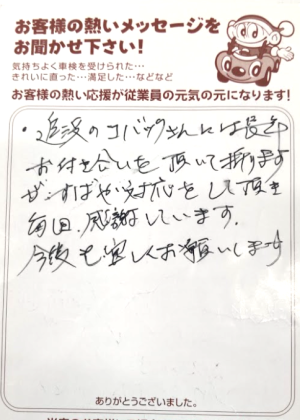 お客様の熱いメッセージを
お聞かせ下さい!
気持ちよく車検を受けられた…
きれいに直った…満足した…などなど
お客様の熱い応援が従業員の元気の元になります!
・追浜のコバックさんには長年
お付き合いを頂いて折ります
が、すばやい対応をして頂き
毎回、感謝しています.
今後も宜しくお願いします
ありがとうございました。